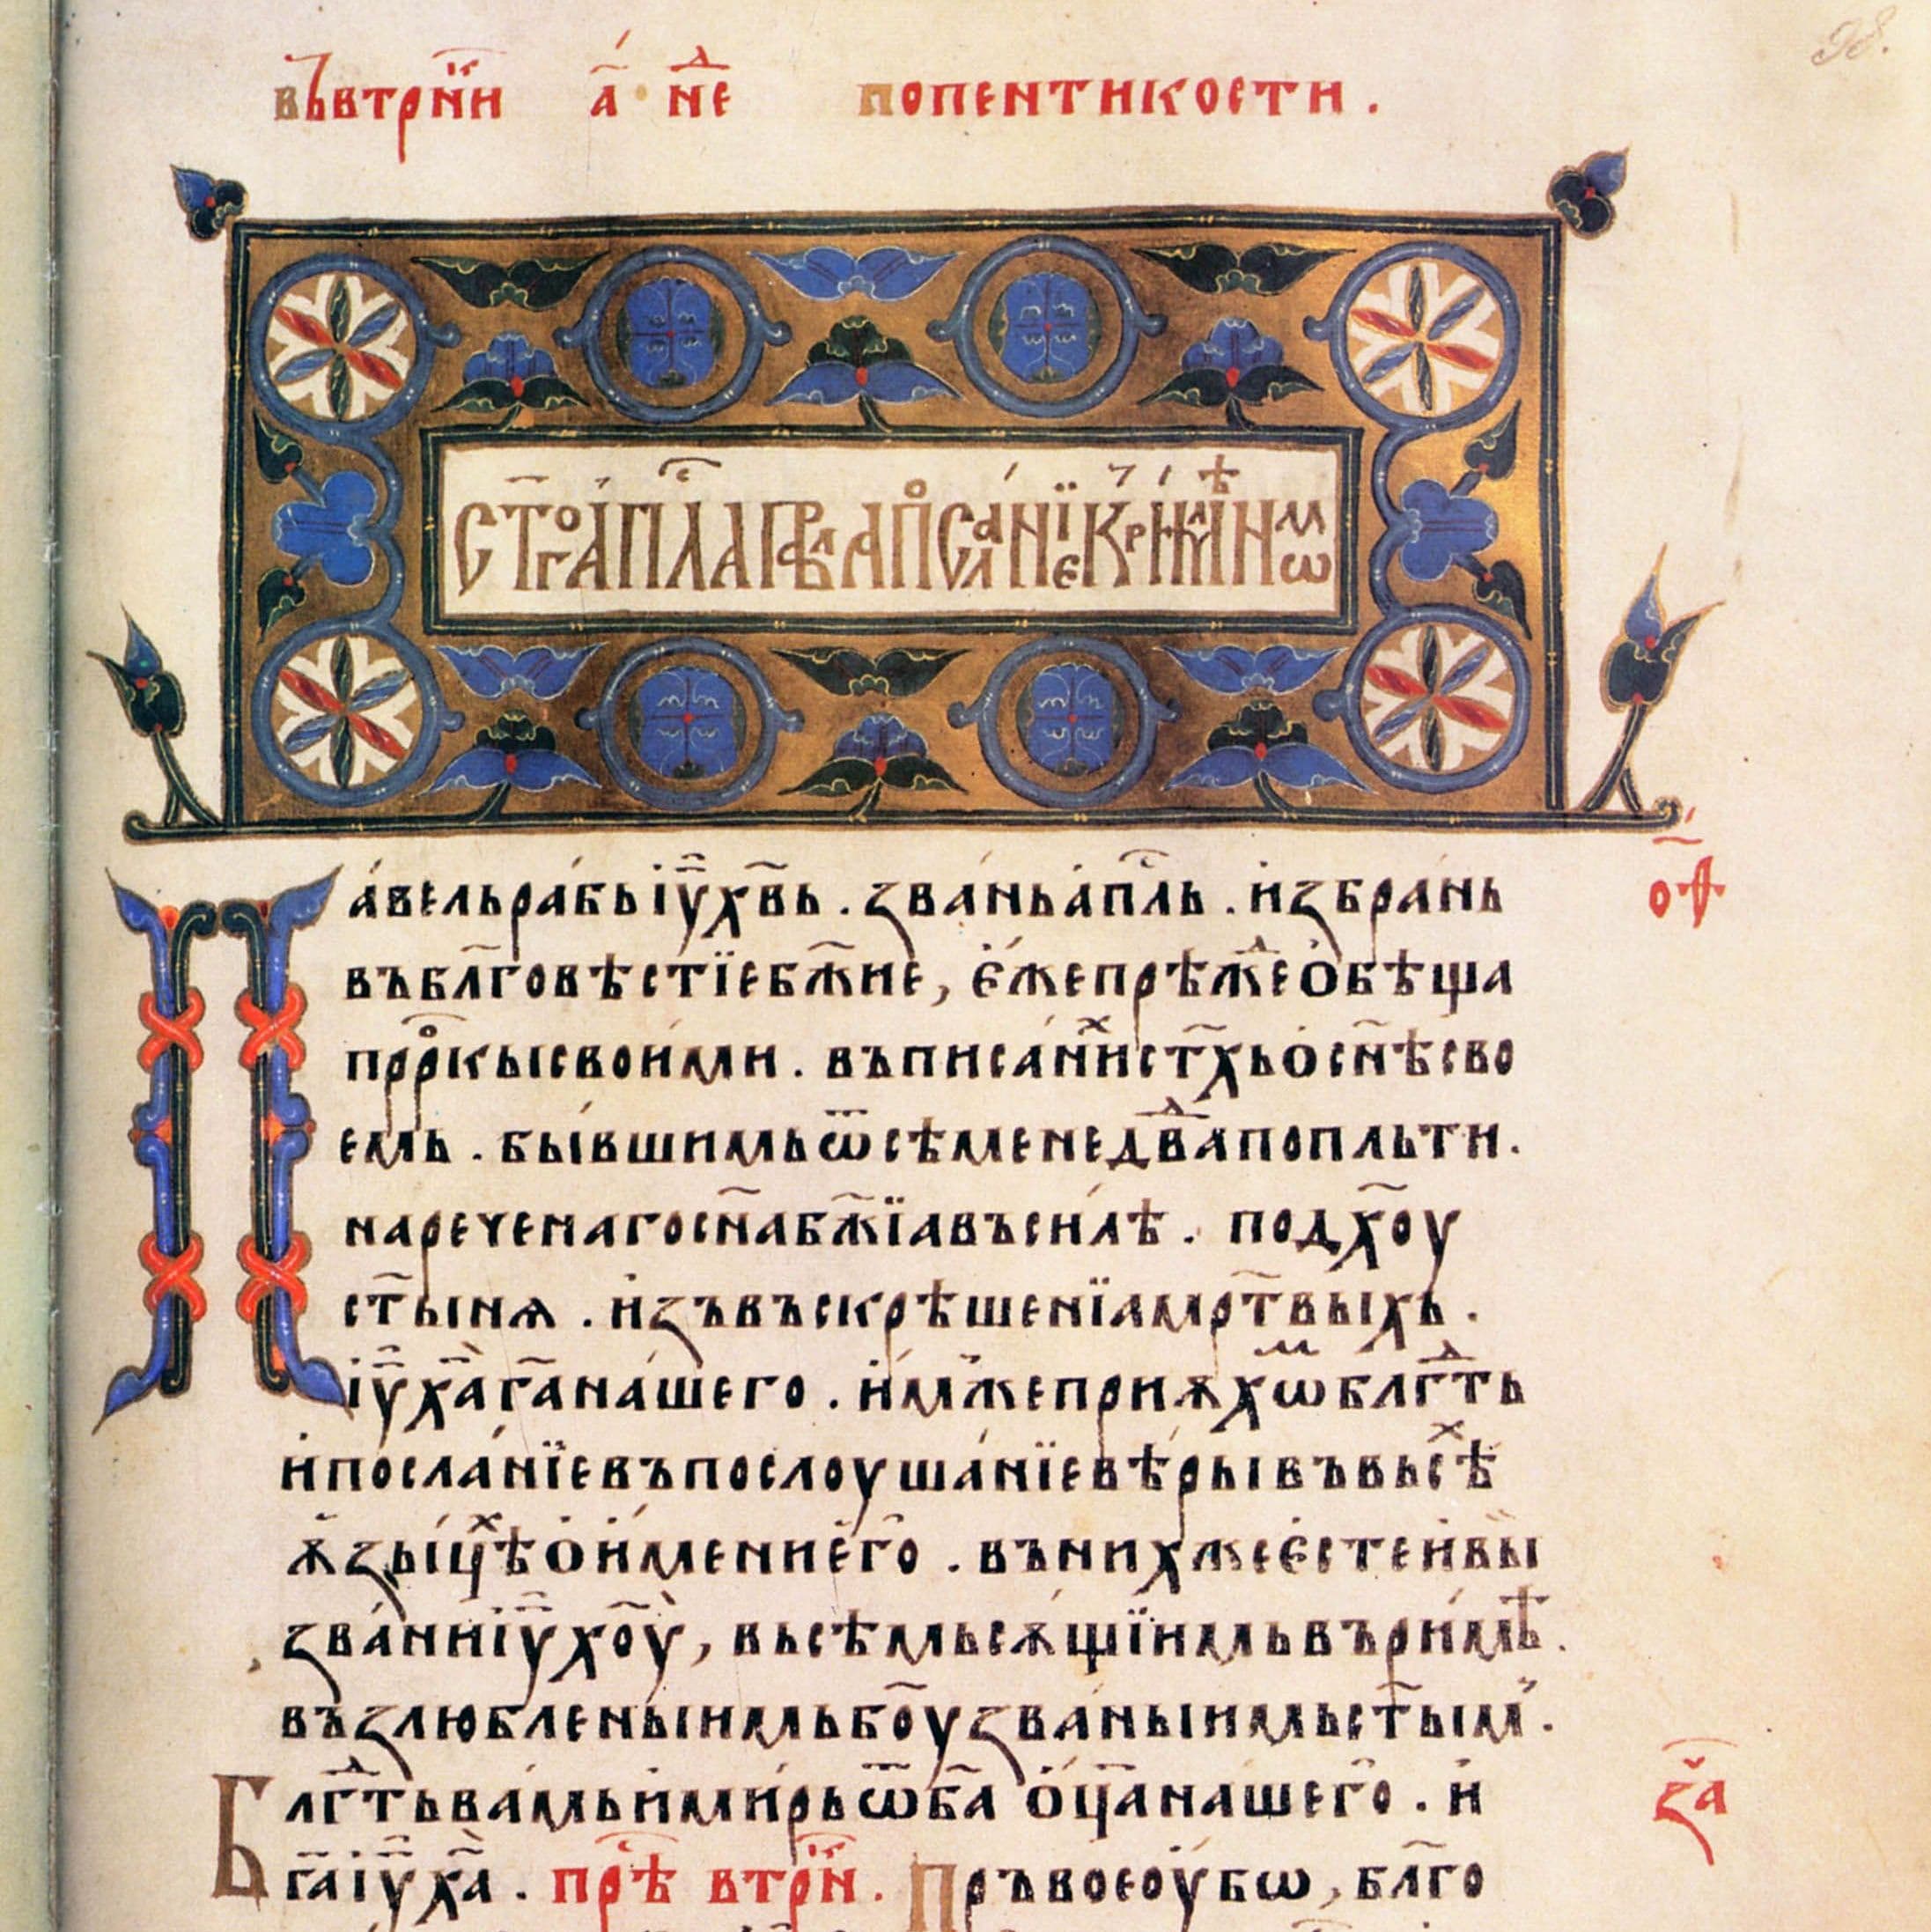 въвторⷩ҇икⷦ҇ а҃ · не҃ⷣ попентикости .
ст҃го апⷭ҇ла павла посланїе кримлѣнѡм
Павель рабь і҆ѵ҃ хв҃ь . ꙁвань ап҃ль . иꙁбрань
въ бл҃говѣстїе бж҃ие , еже прѣжⷣе обѣща
прⷪ҇ркы своими . въ писанїиⷯ ст҃хь о сн҃ѣ сво
емь . бывшимь ѿ сѣмене дв҃ⷣа по пльти .
нареченаго сн҃а бж҃їа въ силѣ . по дх҃оу
ст҃ынѧ . иꙁъ въскрѣшенїа мрт҃выхь .
іѵ҃ ха҃ га҃ нашего . имже приѧхѡⷨ блгⷣ҇ть
и посланїе въ послоушанїе вѣры въ вьсѣⷯ
ѧꙁыцѣⷯ о имени его . въ нихже есте и вы
ꙁванни іѵ҃ хо҃у , вьсѣмь сѧщїимь въ римѣ .
въꙁлюбленыимь бо҃у ꙁваныимь ст҃ым .
Блгⷣ҇ть вамь и мирь ѿ ба҃ оц҃а нашего . и
га҃ іѵ҃ ха҃ . прⷭ҇ѣ вторⷩ҇ик . Пръвое оубѡ , бл҃го
о҃ѳ
ꙁа҃
98.